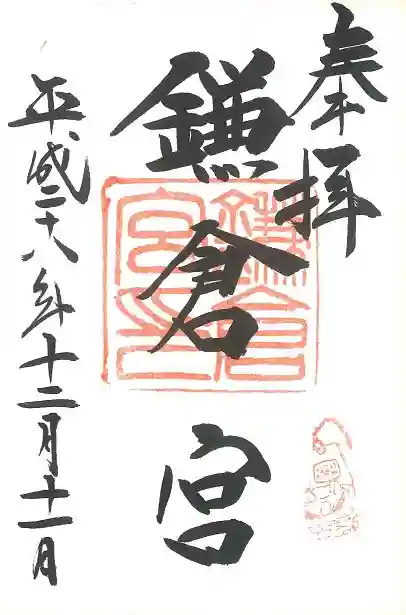 奉拝
鎌倉宮
鎌倉宮印
平成二十八年十二月十一日